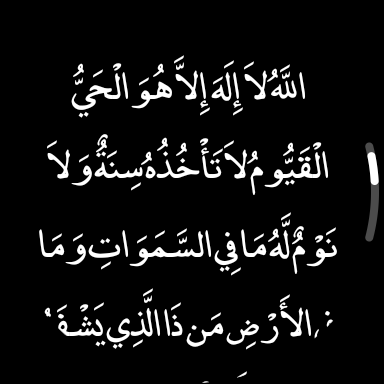 اللَّهُ لاَ إِلَهَ إِلاَّ هُوَ الْحَيُّ
الْقَيُّومُ لاَ تَأْخُذُهُ سِنَةٌ وَلاَ
نَوْمٌ لَّهُ مَا فِي السَّمَوَاتِ وَمَا
الأَرْضِ مَن ذَا الَّذِي